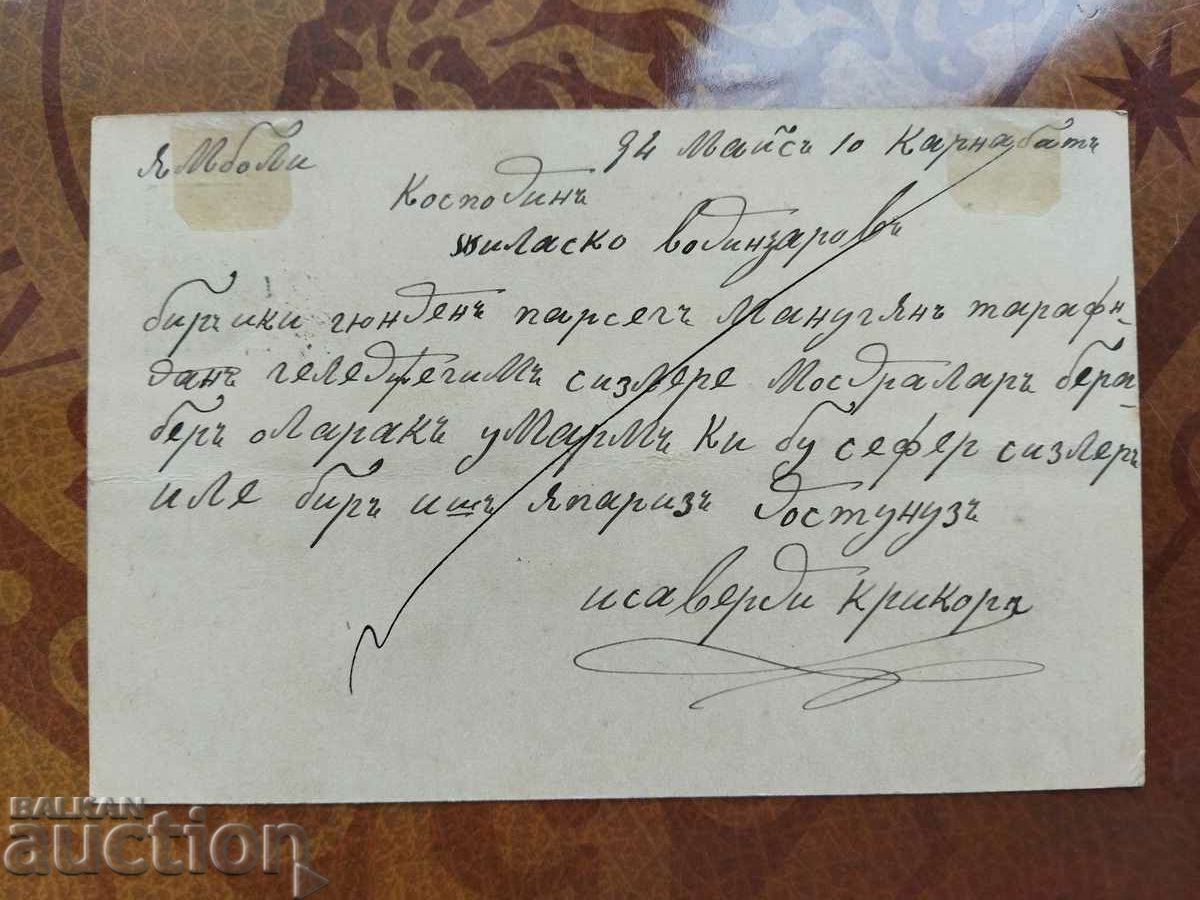 Ямболи 94 Майсъ 10 Карнабатъ
Косподинъ
иласко водинзаровъ
биръ ики гюнденъ парсегъ Манугянъ тарафн-
данъ геледжегимъ сизлере Мосдралар бера-
беръ оларакъ умармъ ки бу сефер сизлеръ
иле биръ ишъ япаризъ достунузъ
исаверди Крикоръ
BALKAN
auction